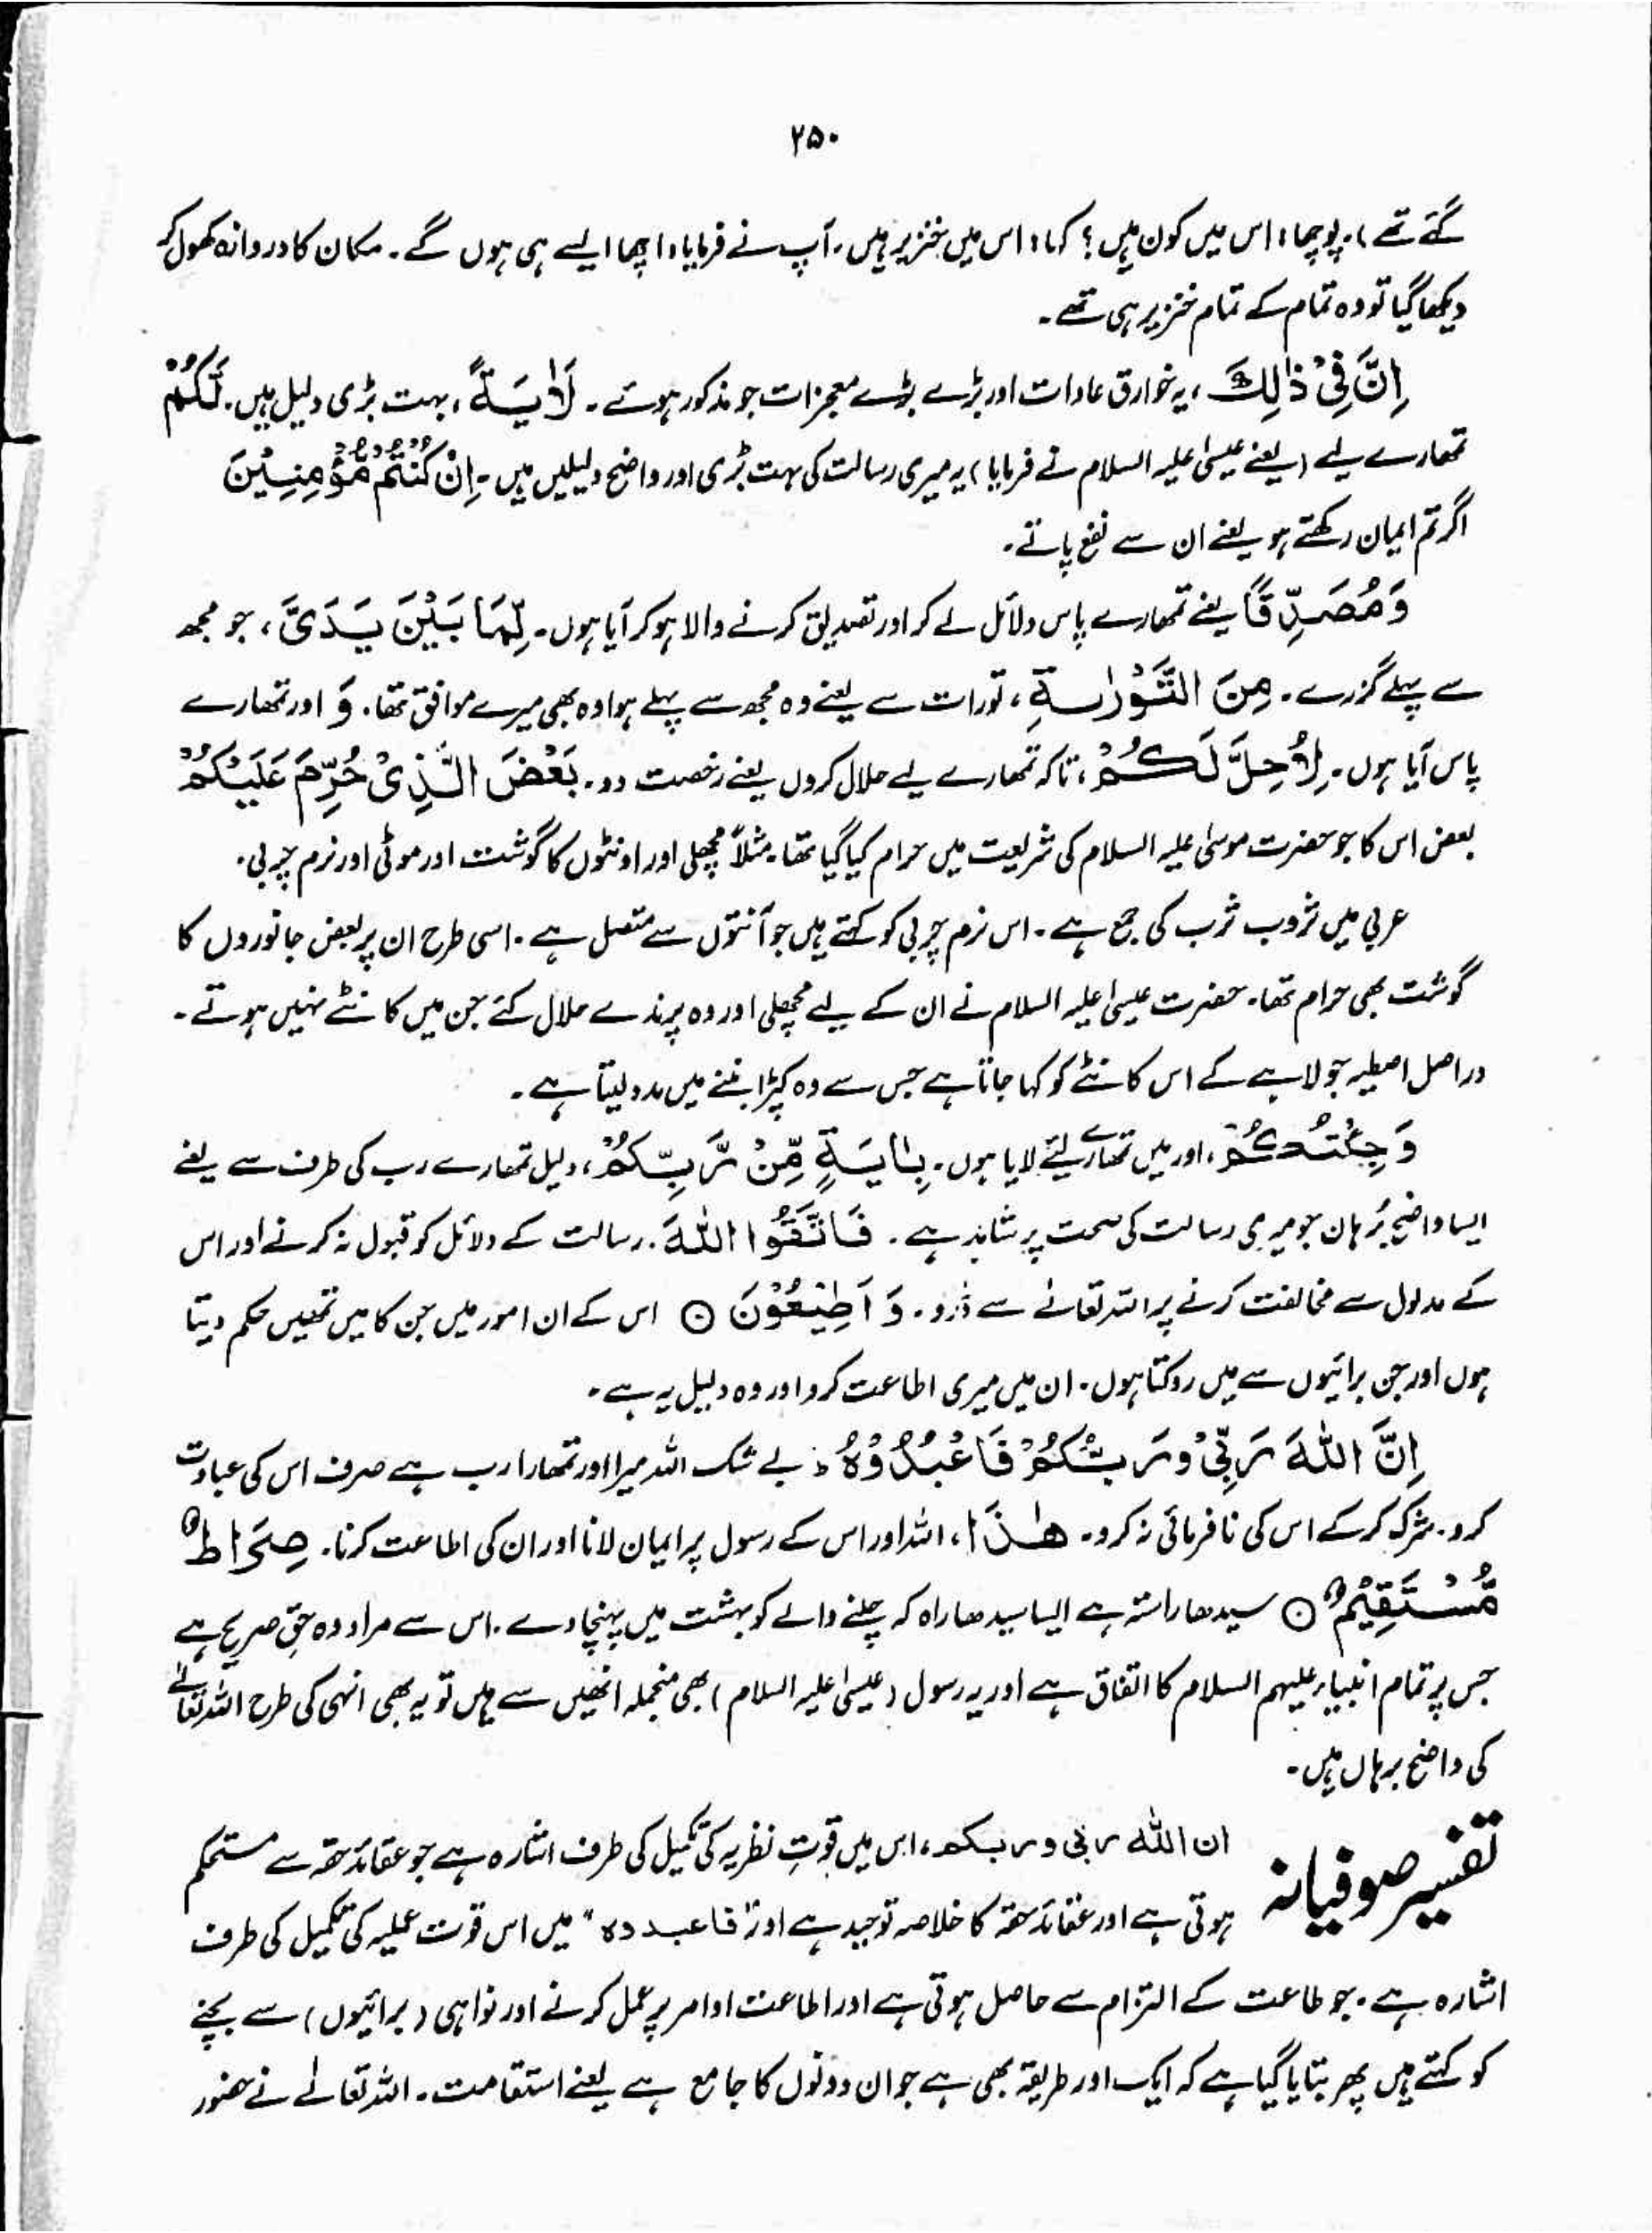 ۲۵۰
گئے تھے)۔ پوچھا؛ اس میں کون ہیں؟ کہا؛ اس میں خنزیر ہیں۔ آپ نے فرمایا، اچھا ایسے ہی ہوں گے۔ مکان کا دروازہ کھول کر
دیکھا گیا تو وہ تمام کے تمام خنزیر ہی تھے۔
اِنَّ فِیْ ذٰلِكَ، یہ خوارق عادات اور بڑے بڑے معجزات جو مذکور ہوئے۔ لَاٰیَۃً، بہت بڑی دلیل ہیں۔ لَّکُمْ
تمھارے لیے (یعنے عیسیٰ علیہ السلام نے فرمایا) یہ میری رسالت کی بہت بڑی اور واضح دلیلیں ہیں۔ اِنْ کُنْتُمْ مُّؤْمِنِیْنَ
اگر تم ایمان رکھتے ہو یعنے ان سے نفع پاتے۔
وَمُصَدِّقًا یعنے تمھارے پاس دلائل لے کر اور تصدیق کرنے والا ہو کر آیا ہوں۔ لِّمَا بَیْنَ یَدَیَّ، جو مجھ
سے پہلے گزرے۔ مِنَ التَّوْرٰىةِ، تورات سے یعنے وہ مجھ سے پہلے ہوا وہ بھی میرے موافق تھا۔ وَ اور تمھارے
پاس آیا ہوں۔ لِاُحِلَّ لَکُمْ، تاکہ تمھارے لیے حلال کروں یعنے رخصت دو۔ بَعْضَ الَّذِیْ حُرِّمَ عَلَیْکُمْ
بعض اس کا جو حضرت موسیٰ علیہ السلام کی شریعت میں حرام کیا گیا تھا۔ مثلاً مچھلی اور اونٹوں کا گوشت اور موٹی اور نرم چربی۔
عربی میں ثروب ثرب کی جمع ہے۔ اس نرم چربی کو کہتے ہیں جو آنتوں سے متصل ہے۔ اسی طرح ان پر بعض جانوروں کا
گوشت بھی حرام تھا۔ حضرت عیسیٰ علیہ السلام نے ان کے لیے مچھلی اور وہ پرندے حلال کئے جن میں کانٹے نہیں ہوتے۔
دراصل اصطیہ جولاہے کے اس کانٹے کو کہا جاتا ہے جس سے وہ کپڑا بننے میں مدد لیتا ہے۔
وَجِئْتُکُمْ، اور میں تمھارے لئے لایا ہوں۔ بِاٰیَۃٍ مِّنْ رَّبِّکُمْ، دلیل تمھارے رب کی طرف سے یعنے
ایسا واضح بُرہان جو میری رسالت کی صحت پر شاہد ہے۔ فَاتَّقُوا اللّٰهَ۔ رسالت کے دلائل کو قبول نہ کرنے اور اس
کے مدلول سے مخالفت کرنے پر اللہ تعالٰے سے ڈرو۔ وَ اَطِیْعُوْنَ ○ اس کے ان امور میں جن کا میں تمھیں حکم دیتا
ہوں اور جن برائیوں سے میں روکتا ہوں۔ ان میں میری اطاعت کرو اور وہ دلیل یہ ہے۔
اِنَّ اللّٰهَ رَبِّیْ وَرَبُّکُمْ فَاعْبُدُوْهُ ط بے شک اللہ میرا اور تمھارا رب ہے صرف اس کی عبادت
کرو۔ شرک کرکے اس کی نافرمائی نہ کرو۔ هٰذَا، اللہ اور اس کے رسول پر ایمان لانا اور ان کی اطاعت کرنا۔ صِرَاطٌ
مُّسْتَقِیْمٌ ○ سیدھا راستہ ہے ایسا سیدھا راہ کہ چلنے والے کو بہشت میں پہنچا دے۔ اس سے مراد وہ حقِ صریح ہے
جس پر تمام انبیاء علیہم السلام کا اتفاق ہے اور یہ رسول (عیسیٰ علیہ السلام) بھی منجملہ انھیں سے ہیں تو یہ بھی انہی کی طرح اللہ تعالٰے
کی واضح برہاں ہیں۔
تفسیر صوفیانہ
ان اللّٰه ربی وربکم، اس میں قوتِ نظریہ کی تکمیل کی طرف اشارہ ہے جو عقائد حقہ سے مستحکم
ہوتی ہے اور عقائد حقہ کا خلاصہ توحید ہے اور "فاعبدوہ" میں اس قوت عملیہ کی تکمیل کی طرف
اشارہ ہے۔ جو طاعت کے التزام سے حاصل ہوتی ہے اور اطاعت اوامر پر عمل کرنے اور نواہی (برائیوں) سے بچنے
کو کہتے ہیں پھر بتایا گیا ہے کہ ایک اور طریقہ بھی ہے جو ان دونوں کا جامع ہے یعنے استقامت۔ اللہ تعالٰے نے حضور